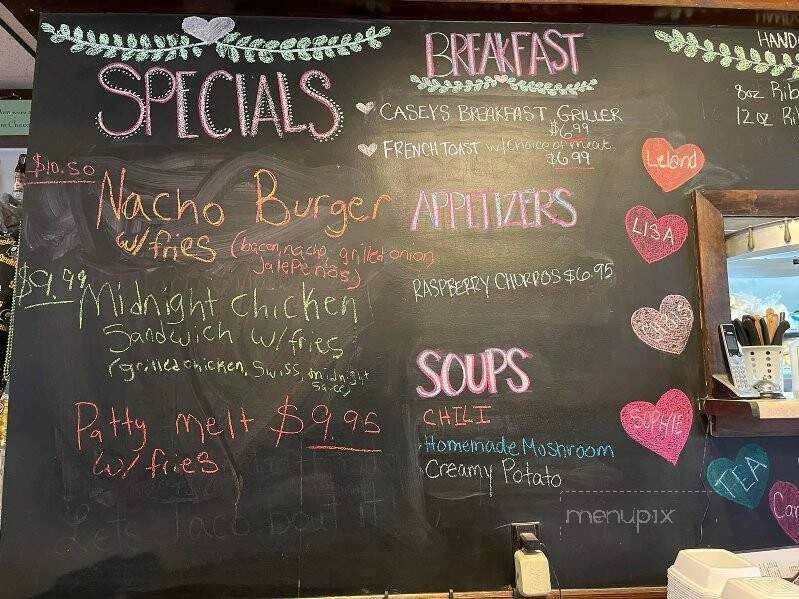 SPECIALS
$10.50
Nacho Burger
w/fries (bacon, nacho, grilled onion,
Jalepeñas)
$9.99
Midnight chicken
Sandwich w/fries
(grilled chicken, Swiss, midnight
sauce)
Patty melt $9.95
w/ fries
Lets Taco bout it
BREAKFAST
CASEY'S BREAKFAST GRILLER
$6.99
FRENCH TOAST w/choice of meat
$6.99
APPETIZERS
RASPBERRY CHURROS $6.95
SOUPS
CHILI
Homemade Mushroom
Creamy Potato
HAND
8oz Rib
12 oz Ri
Leland
LISA
SOPHIE
TEA
Car
menupix